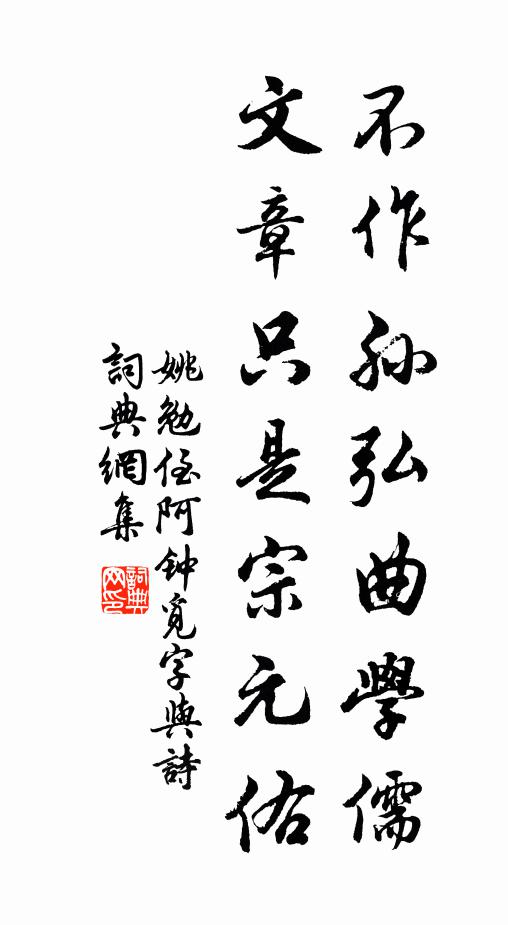 不作孙弘曲學儒
文章只是宗元佑
姚勉侄阿钟覓字與詩
詞典網集
詞典网印